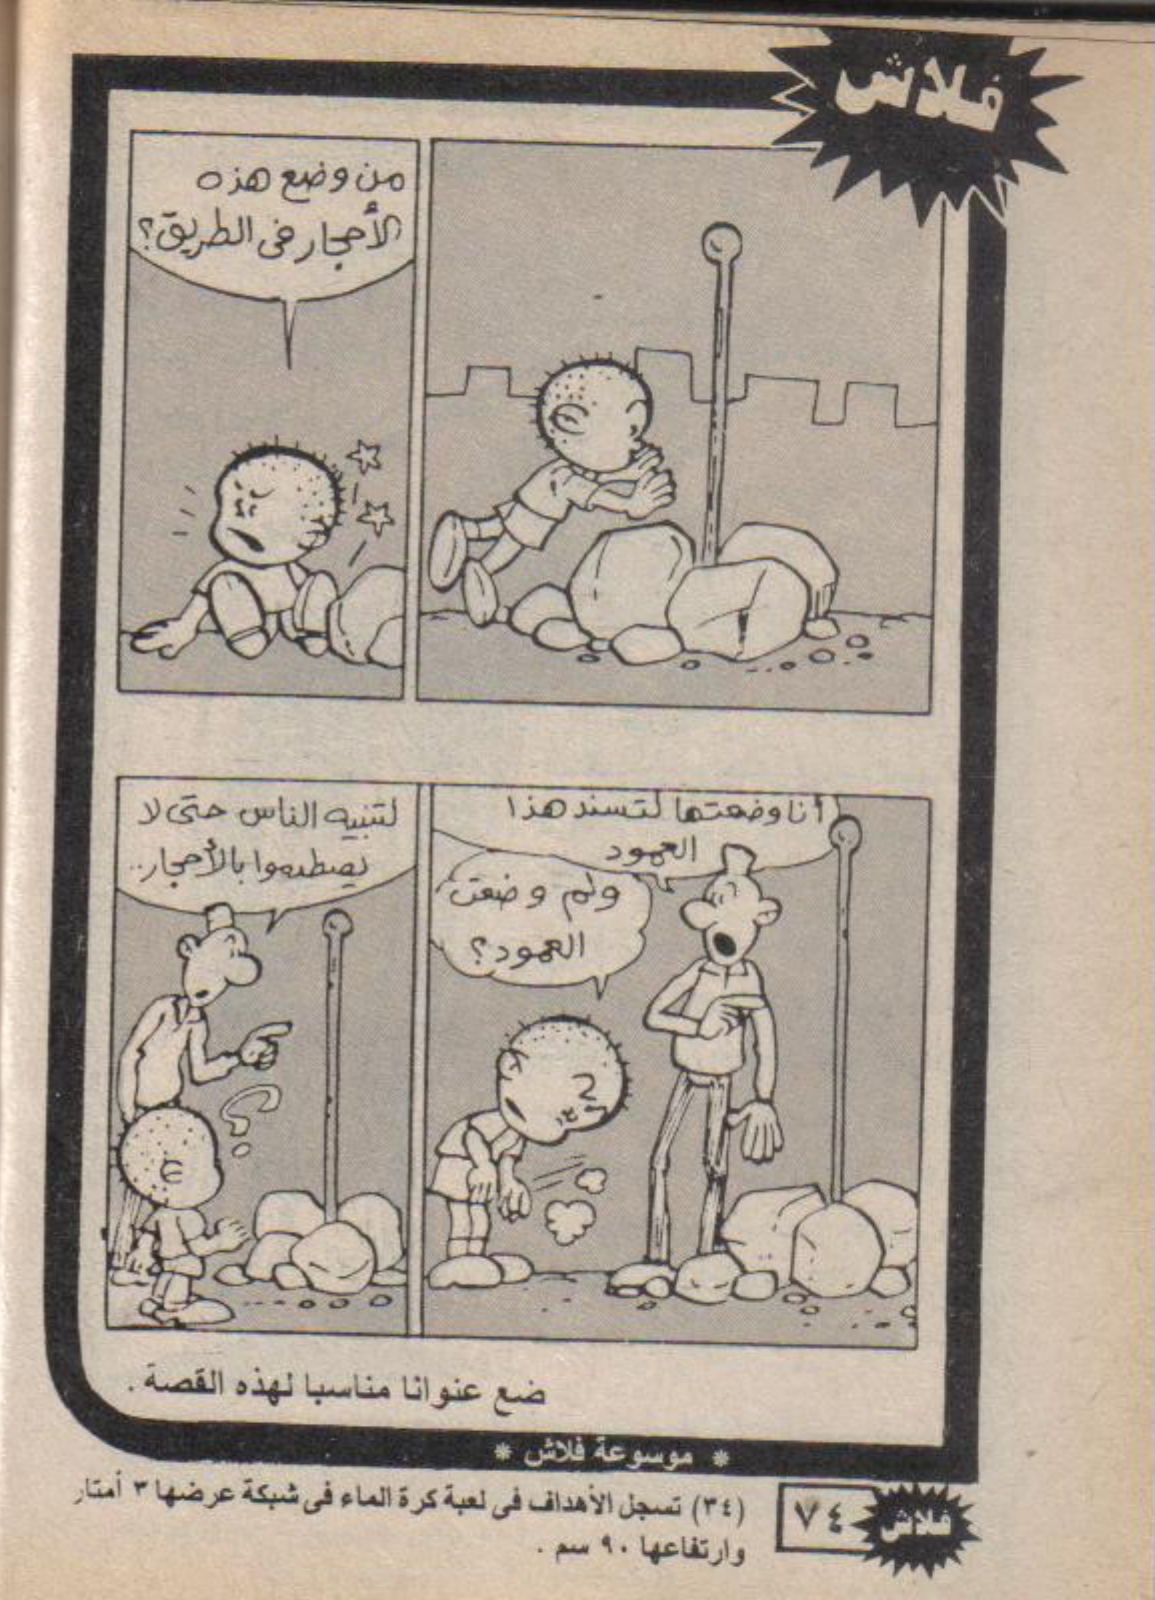 فلاش
من وضع هذه
الأحجار فى الطريق؟
أنا وضعتها لتسند هذا
العمود
ولم وضعت
العمود؟
لتنبيه الناس حتى لا
يصطدموا بالأحجار..
ضع عنوانا مناسبا لهذه القصة .
* موسوعة فلاش *
(٣٤) تسجل الأهداف فى لعبة كرة الماء فى شبكة عرضها ٣ أمتار
وارتفاعها ٩٠ سم .
٧٤
فلاش